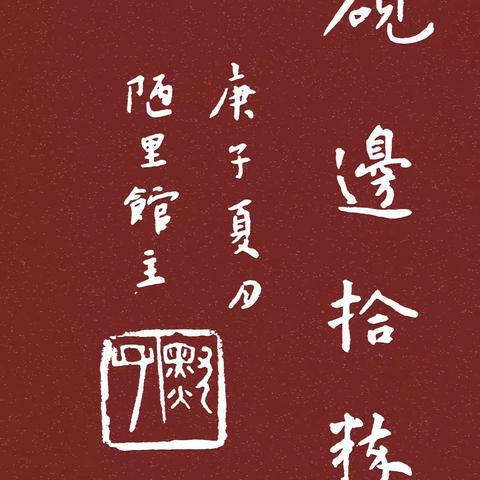 硯邊拾
庚子夏月
陋里館主